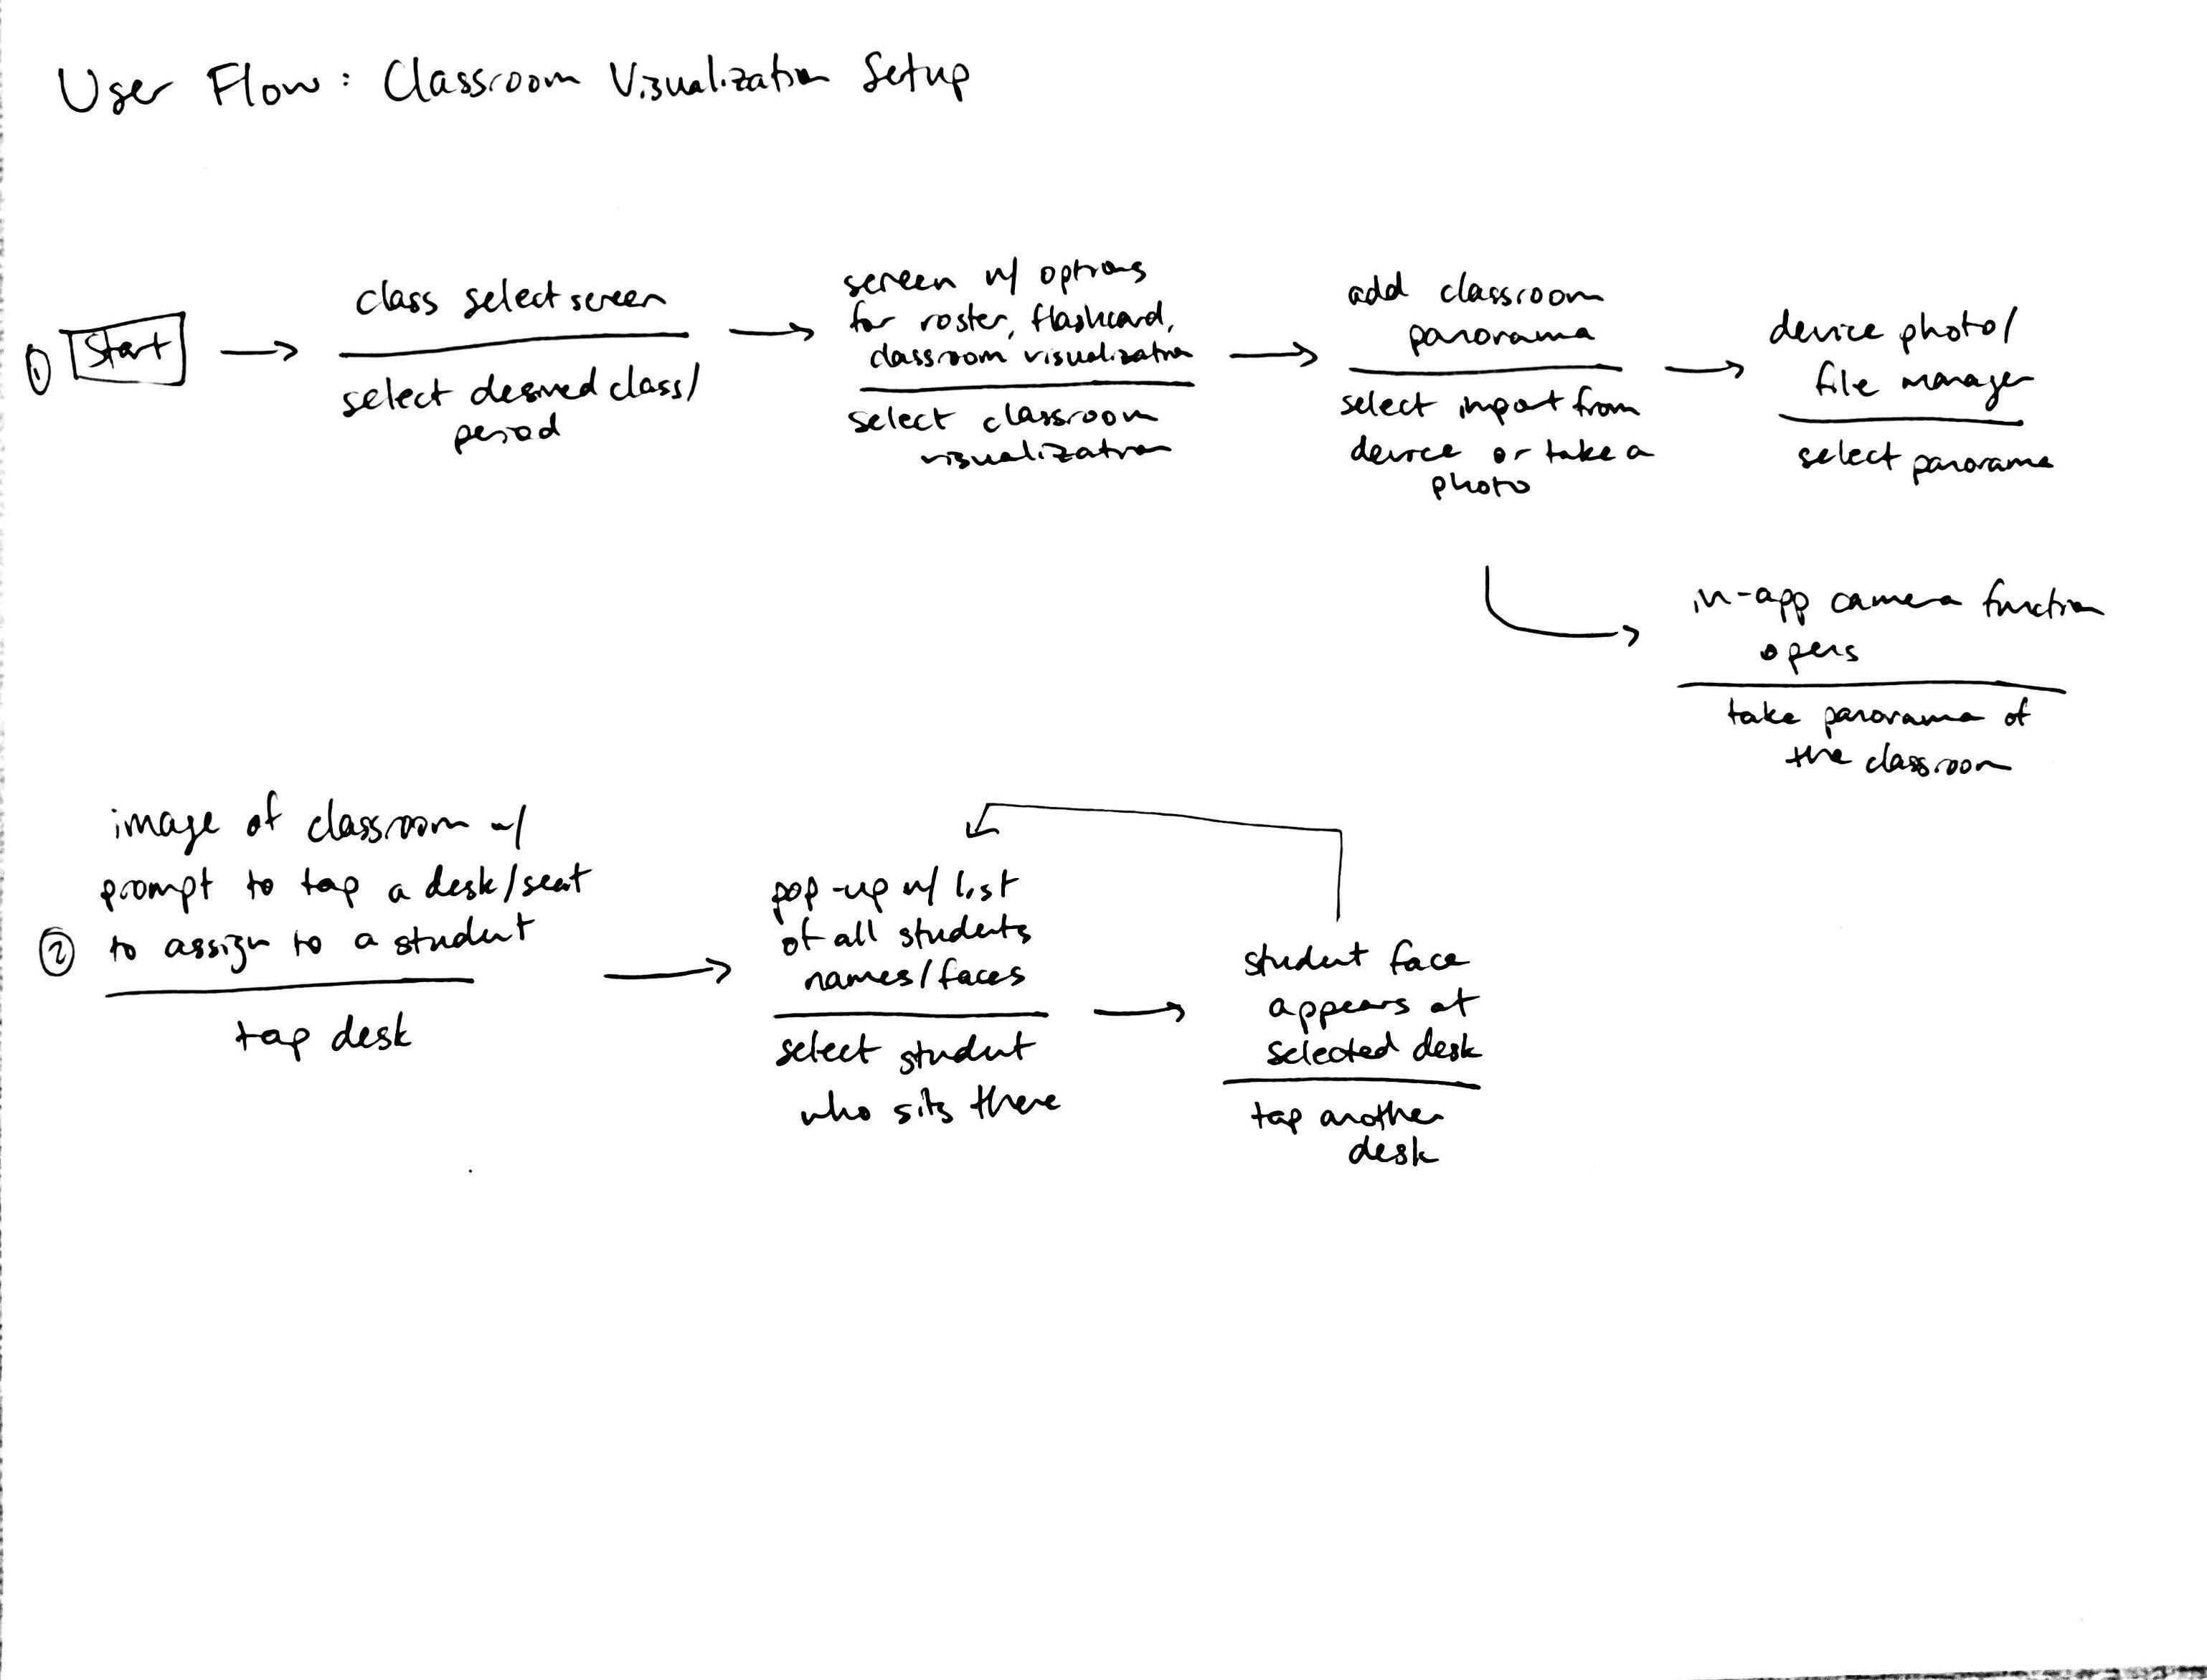 User Flow: Classroom Visualization Setup
① Start
class select screen
select desired class/
period
screen w/ options
for roster, flashcard,
classroom visualization
select classroom
visualization
add classroom
panorama
select import from
device or take a
photo
device photo/
file manager
select panorama
in-app camera function
opens
take panorama of
the classroom
②
image of classroom w/
prompt to tap a desk/seat
to assign to a student
tap desk
pop-up w/ list
of all students
names/faces
select student
who sits there
student face
appears at
selected desk
tap another
desk